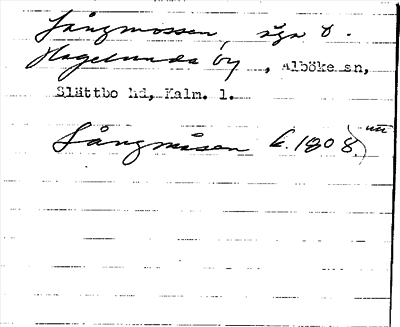 Långmossen, äga t.
Hagelunda by, Alböke sn,
Slättbo hd, Kalm. l.
Långmåsen k. 1808